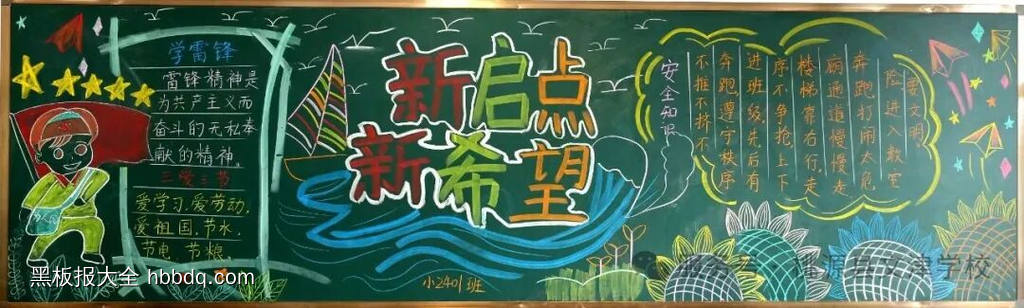 学雷锋
雷锋精神是
为共产主义而
奋斗的无私奉
献的精神。
三爱三节
爱学习,爱劳动,
爱祖国,节水,
节电,节粮。
新启点
新希望
小2401班
安全知识
不推不挤不
奔跑,遵守秩序
进班级,先后有
序不争抢上下
楼梯靠右行,走
廊通道慢慢走
奔跑打闹太危
险进入教室
要文明
黑板报大全 hbbdq.com